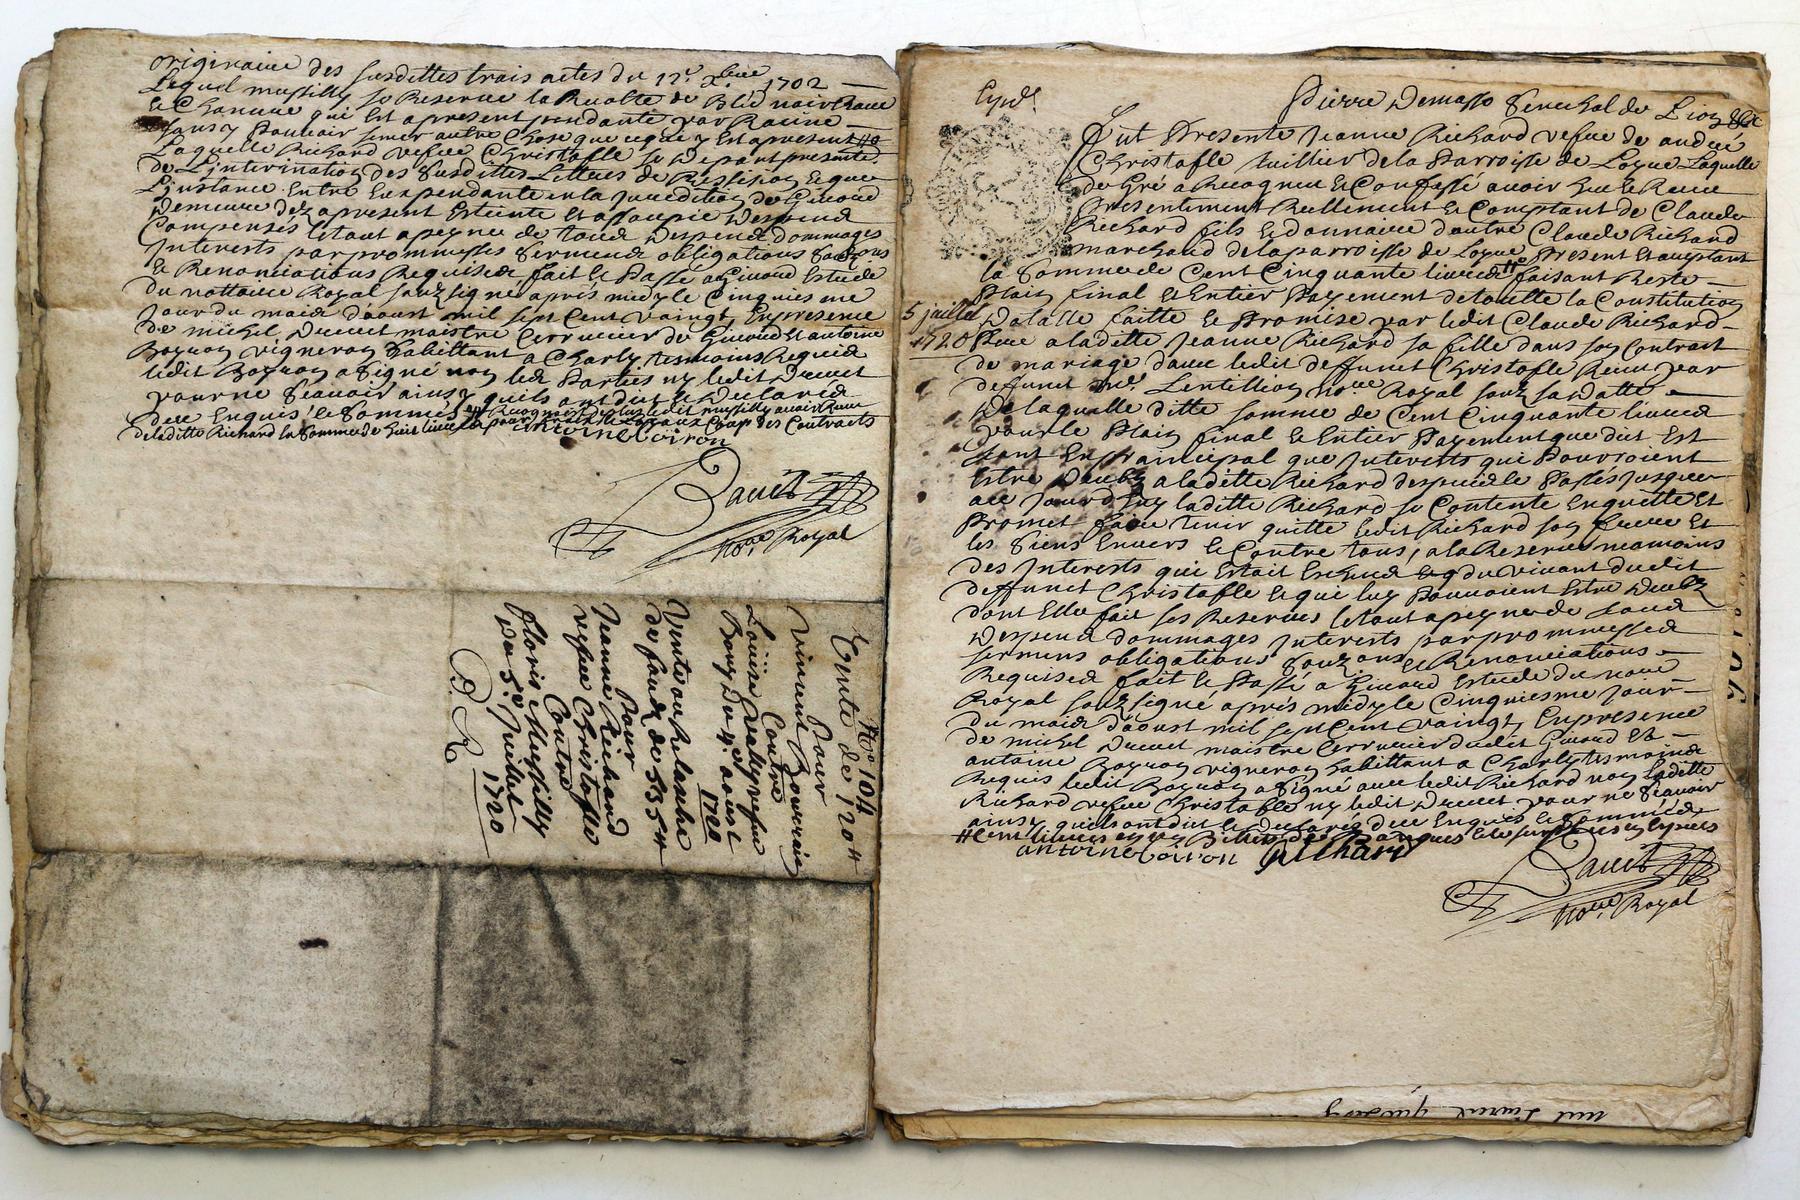 originaire des susdittes trois actes du 12e xbre 1702
Lequel Mussilly se Reserve la Recolte de Bled noir Rave
& Chanvre qui Est apresent pendante par Racine
sans y pouvoir semer autre Chose que ce qui y Est apresent
Laquelle Richard vefve Christofle se Depart presente
De L'interination des susdittes Lettres de Rescision & que
L'instance Entre Eux pendante en la Jurediction de Givord
Demeure dez apresent Esteinte Et assoupie Despend
Compensés le tout a peyne de tous Despend dommages
Interests par promesses serment obligations
& Renonciations Requises fait & Passé a Givord Estude
du nottaire Royal souzsigné apres midy le Cinquiesme
jour du mois d'aoust mil sept Cent vaingt En presence
de michel Ducret maistre serrurier de Givord Et antoine
vigneron habittant a Charly tesmoins Requis
ledit a signé non les Parties ny ledit Ducret
pour ne sçavoir ainsy qu'ils ont dit & Declaré
de ce Enquis & Sommés Recognoist ledit mussilly avoir
de laditte Richard la Somme de huit livres des Contracts
antoine
nore Royal
No 104
Vente de 120 tt
Pour
vincent
Contre
vefve
Du 4 aoust
1720
Vente ou Relasche
de fondz de 555 tt
Pour
Jeanne Richard
vefve Christofle
Contre
Floris Mussilly
Du 5e Juillet
1720
Pierre Demasso Senechal de Lion
Fut Presente Jeanne Richard vefve de andré
Christofle tuillier de la Parroisse de Loyre Laquelle
de Gré a Recogneu & Confessé avoir heu & Receu
Presentement Reellement & Comptant de Claude
Richard fils & donnataire d'autre Claude Richard
marchand de la parroisse de Loyre Present & acceptant
la Somme de Cent Cinquante livres faisant Reste
Plain final & Entier Payement de toutte la Constitution
5 juillet
1720
Dotalle faitte & Promise par ledit Claude Richard
Pere a laditte Jeanne Richard sa fille dans son Contrat
de mariage d'avec ledit deffunct Christofle Receu par
deffunct me Lentillion nore Royal souz sa Datte
De laquelle ditte somme de Cent Cinquante livres
pour le Plain final & Entier Payement que dit Est
tant En principal que Interests qui Pourroient
Estre Deubz a laditte Richard despuis le Passés jusques
au jourd'huy laditte Richard se Contente Enquitte Et
Promet faire tenir quitte ledit Richard son frere Et
les Siens Envers & Contre tous, a la Reserve neamoins
des Interests qui Estoit Escheus du vivant dudit
deffunct Christofle & qui luy Pouvoient Estre Deubz
dont Elle fait ses Reserves le tout a peyne de tous
Despend dommages Interests par promesses
serment obligations & Renonciations
Requises fait & Passé a Givord Estude du nore
Royal souzsigné apres midy le Cinquiesme jour
du mois d'aoust mil sept Cent vaingt En presence
de michel Ducret maistre serrurier dudit Givord Et
antoine vigneron habittant a Charly tesmoins
Requis ledit a signé avec ledit Richard non laditte
Richard vefve Christofle ny ledit Ducret pour ne sçavoir
ainsy qu'ils ont dit & Declaré de ce Enquis & Sommés
antoine Richard
nore Royal